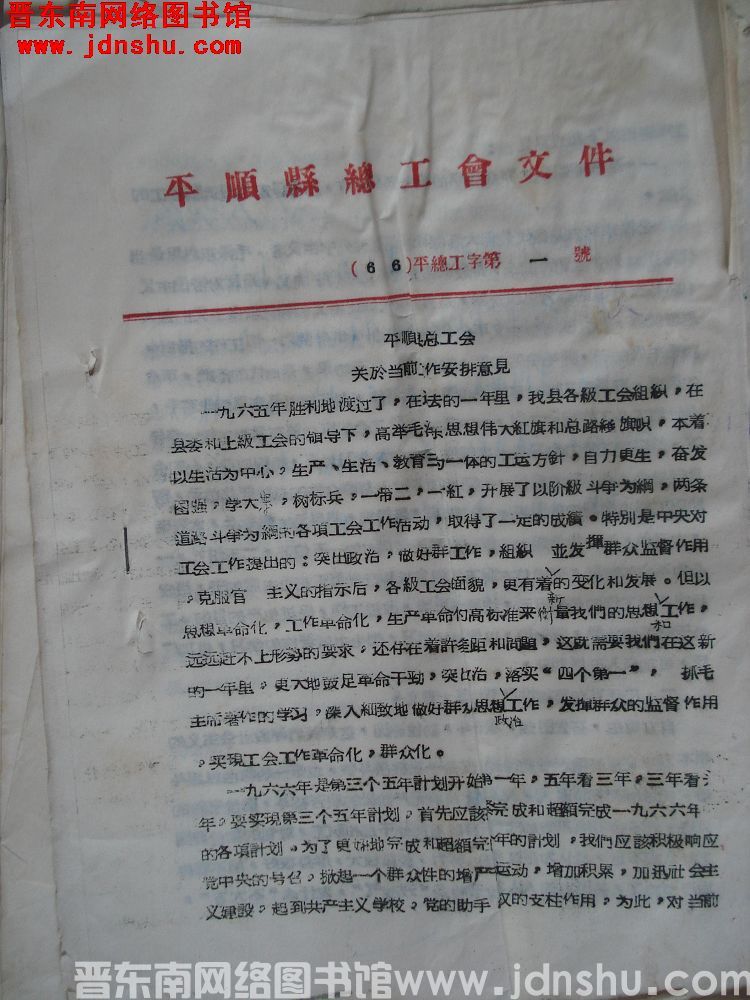 晋东南网络图书馆
www.jdnshu.com
平順縣總工會文件
(66)平總工字第 一 號
平順总工会
关於当前工作安排意見
一九六五年胜利地渡过了，在过去的一年里，我县各級工会組織，在
县委和上級工会的領导下，高举毛东思想伟大紅旗和总路綫旗帜，本着
以生活为中心，生产、生活、教育三为一体的工运方針，自力更生，奋发
图强，学大，树标兵，一帶二，一紅，开展了以阶級斗爭为綱，两条
道路斗爭为綱的各項工会工作活动，取得了一定的成績。特別是中央对
工会工作提出的：突出政治，做好群工作，組織 並发揮群众监督作用
，克服官 主义的指示后，各級工会面貌，更有着新的变化和发展。但以
思想革命化，工作革命化，生产革命的高标准来衡量我們的思想和工作，
远远赶不上形势的要求，还存在着許多距和問題，这就需要我們在这新
的一年里，更大地鼓足革命干劲，突出治，落实“四个第一”， 抓毛
主席著作的学习，深入細致地做好群众思想政治工作，发揮群众的监督作用
，实現工会工作革命化，群众化。
一九六六年是第三个五年計划开始第一年，五年看三年，三年看
年，要实現第三个五年計划，首先应該完成和超額完成一九六六年
的各項計划。为了更好地完成和超額完年的計划，我們应該积极响应
党中央的号召，掀起一个群众性的增产运动，增加积累，加迅社会主
义建設，起到共产主义学校，党的助手 权的支柱作用，为此，对当前
晋东南网络图书馆www.jdnshu.com